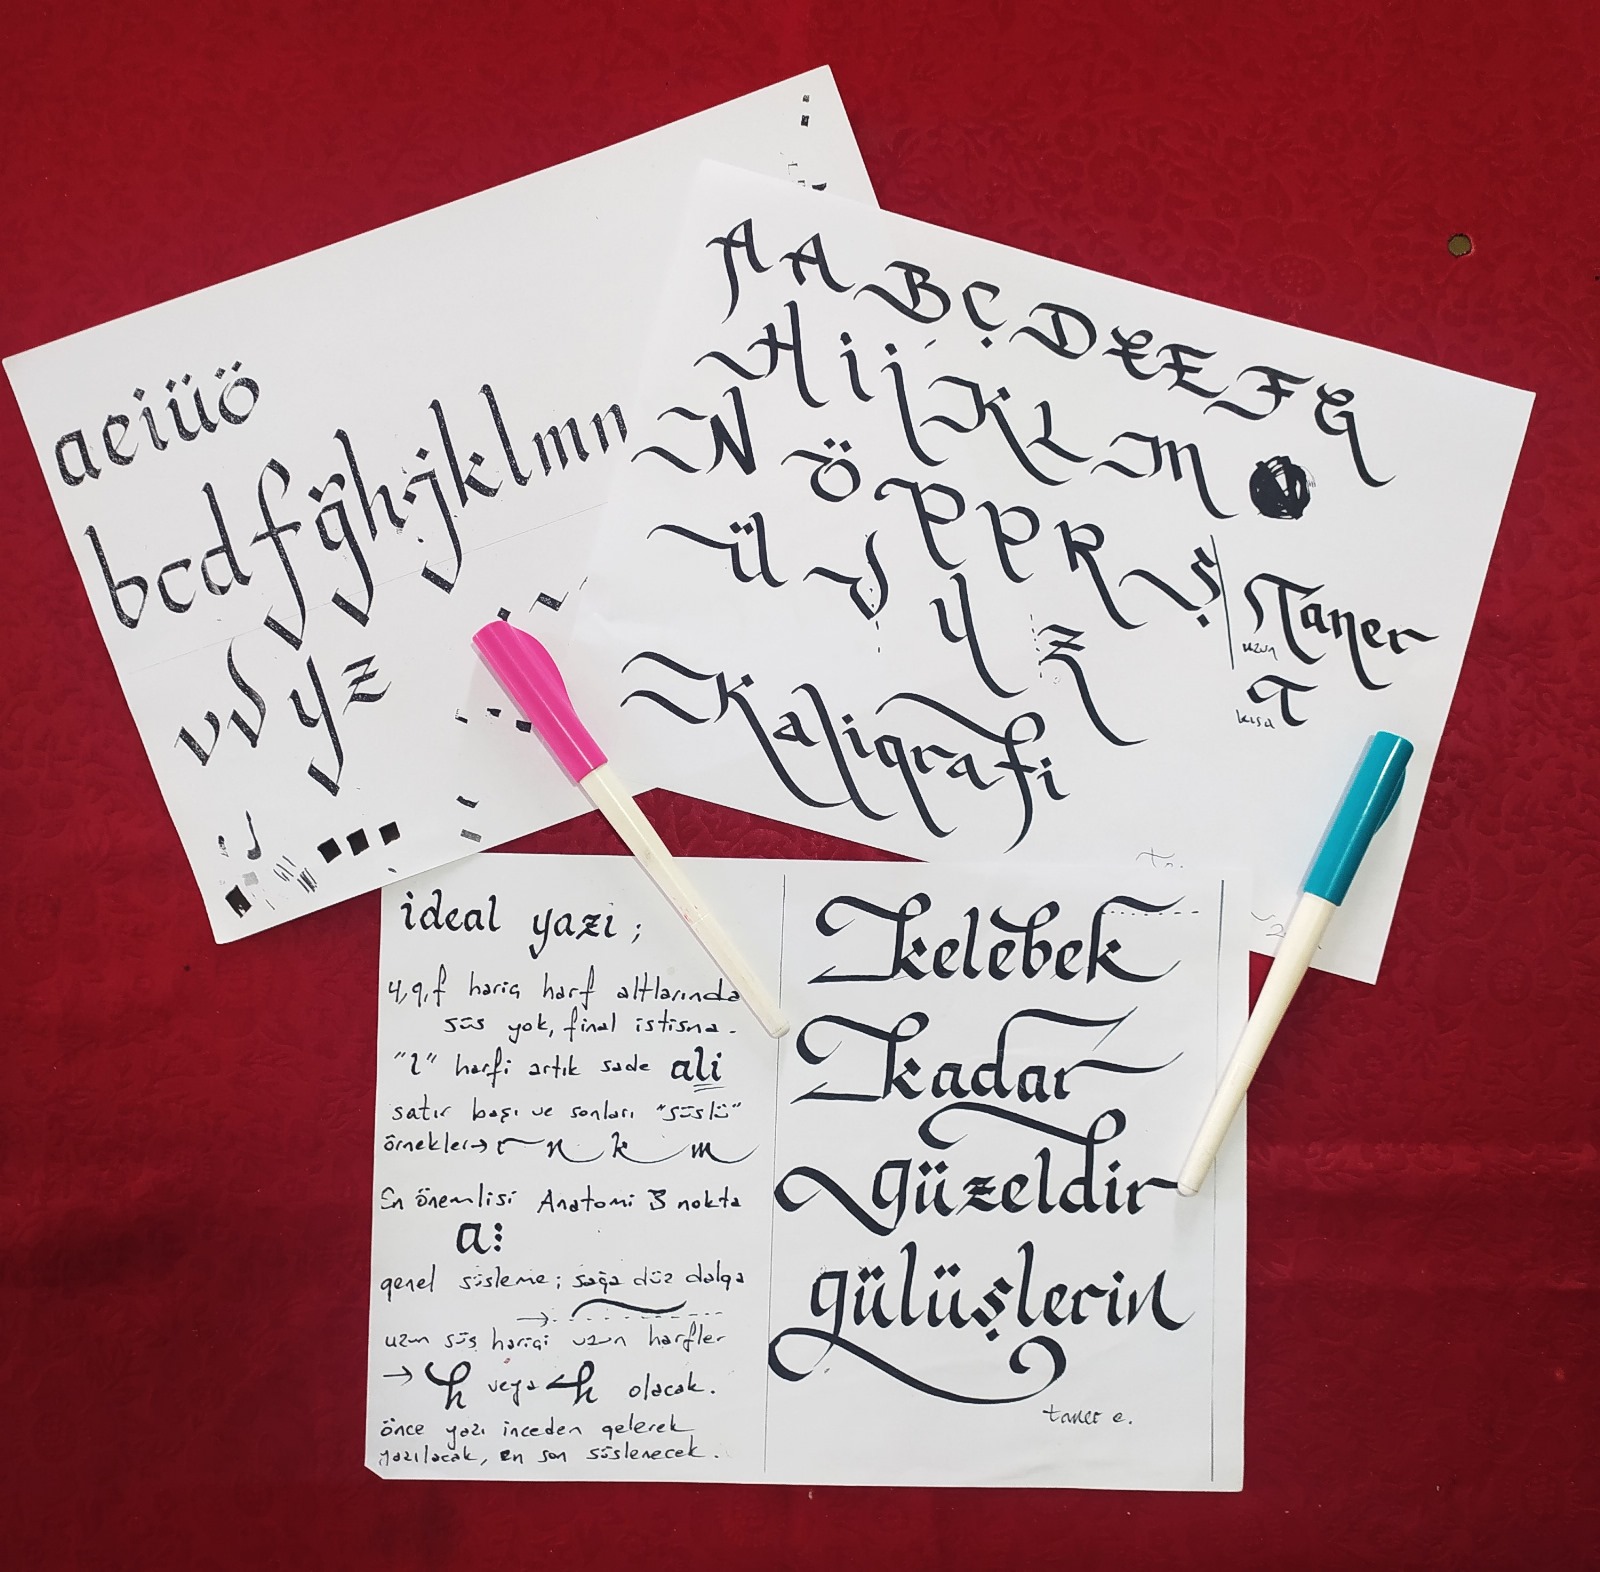 aeiüö
bcdfğhijklmn
vyz
A A B Ç D E E F G
H i j K L M
N Ö P P R Ş
Ü V Y Z
Kaligrafi
Taner
uzun
T
kısa
ideal yazi ;
y, g, f hariç harf altlarında
süs yok, final istisna.
"l" harfi artık sade ali
satır başı ve sonları "süslü"
örnekler→ r n k m
En önemlisi Anatomi 3 nokta
a
genel süsleme ; sağa düz dalga
→
uzun süs harici uzun harfler
→ h veya h olacak.
önce yazı inceden gelerek
yazılacak, en son süslenecek.
kelebek
kadar
güzeldir
gülüşlerin
taner e.